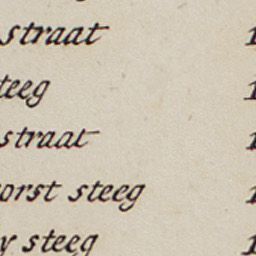 straat 1
teeg 1
straat 1
orst steeg 1
y steeg 1